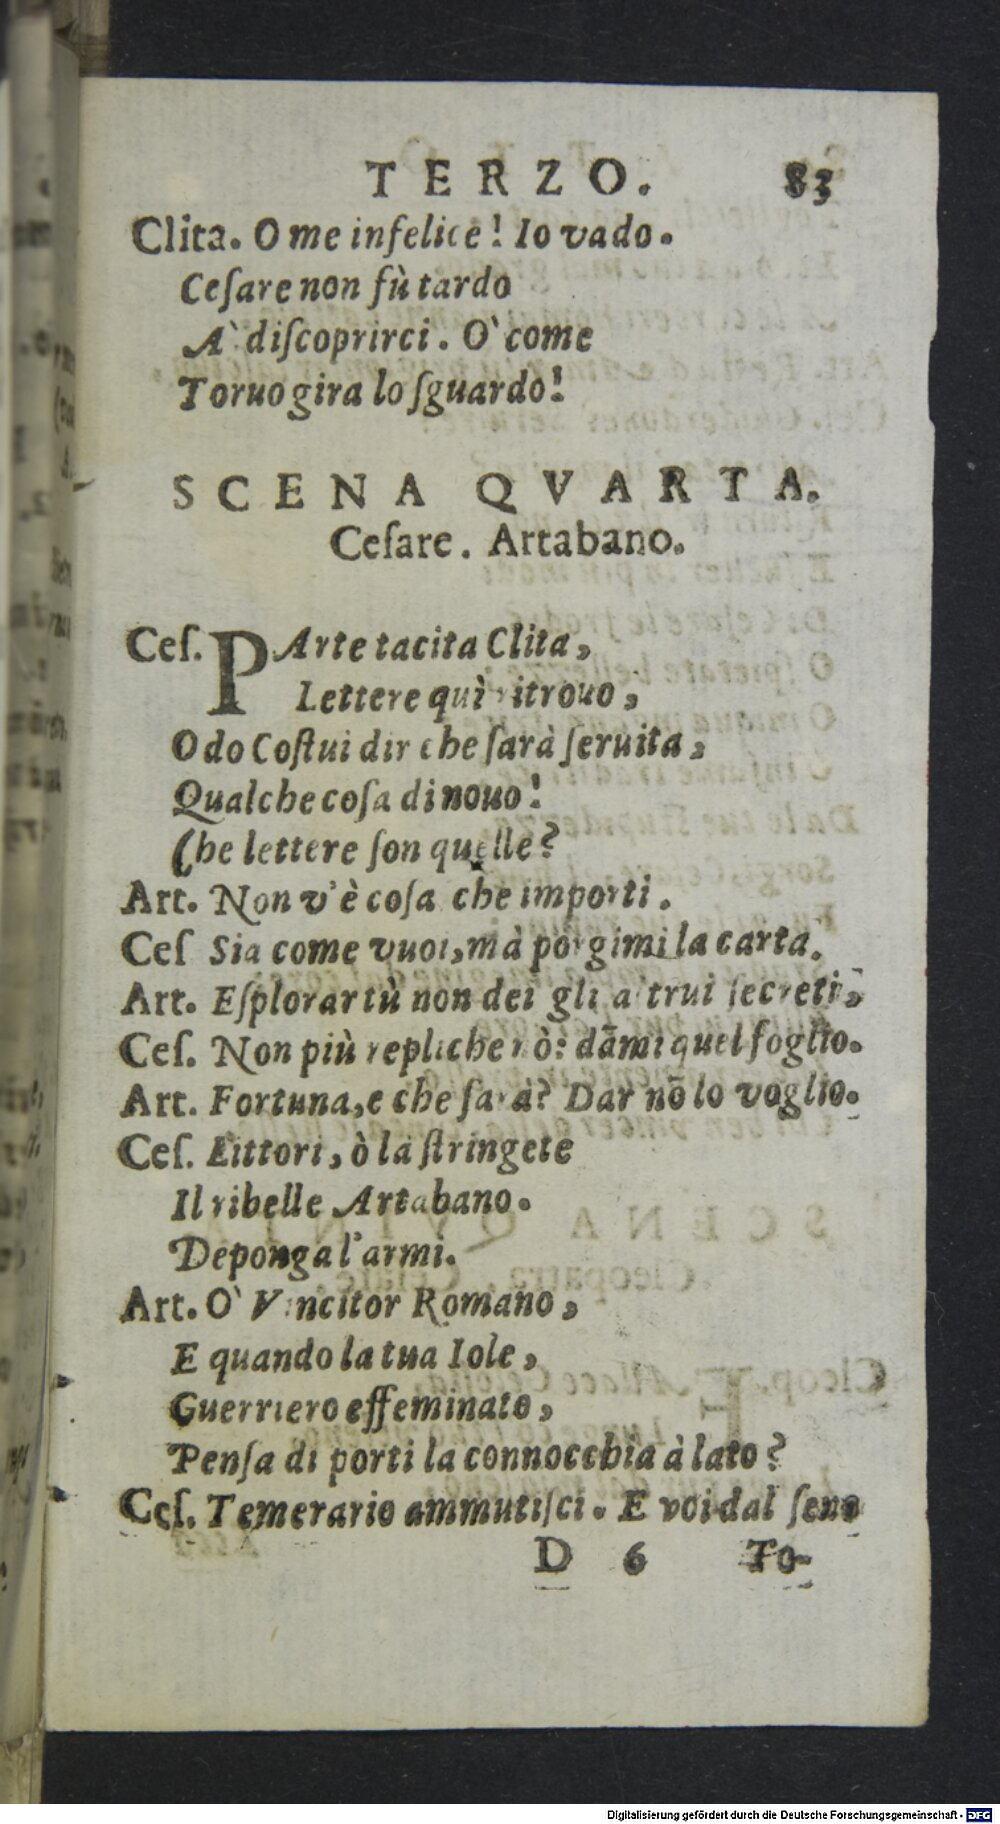 TERZO. 83
Clita. O me infelice! Io vado.
Ceſare non fù tardo
A` diſcoprirci. O` come
Toruo gira lo ſguardo!
SCENA QVARTA.
Ceſare. Artabano.
Ceſ. PArte tacita Clita,
Lettere quì ritrouo,
Odo Coſtui dir che ſarà ſeruita,
Qualche coſa di nouo!
Che lettere ſon quelle?
Art. Non v'è coſa che importi.
Ceſ Sia come vuoi, mà porgimi la carta.
Art. Eſplorar tù non dei gli altrui ſecreti,
Ceſ. Non più repliche nò: dāmi quel foglio.
Art. Fortuna, e che ſarà? Dar nō lo voglio.
Ceſ. Littori, ò là ſtringete
Il ribelle Artabano.
Deponga l'armi.
Art. O` Vincitor Romano,
E quando la tua Iole,
Guerriero effeminato,
Penſa di porti la connocchia à lato?
Ceſ. Temerario ammutiſci. E voi dal ſeno
D 6 To-
Digitalisierung gefördert durch die Deutsche Forschungsgemeinschaft - DFG